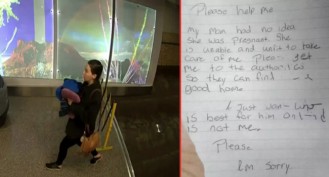 Please help me
My Mom had no idea
She was Pregnant. She
is unable and unfit to take
care of me. Please get
me to the authorities
so they can find a
good home.
I just want what
is best for him and it
is not me.
Please
Im Sorry